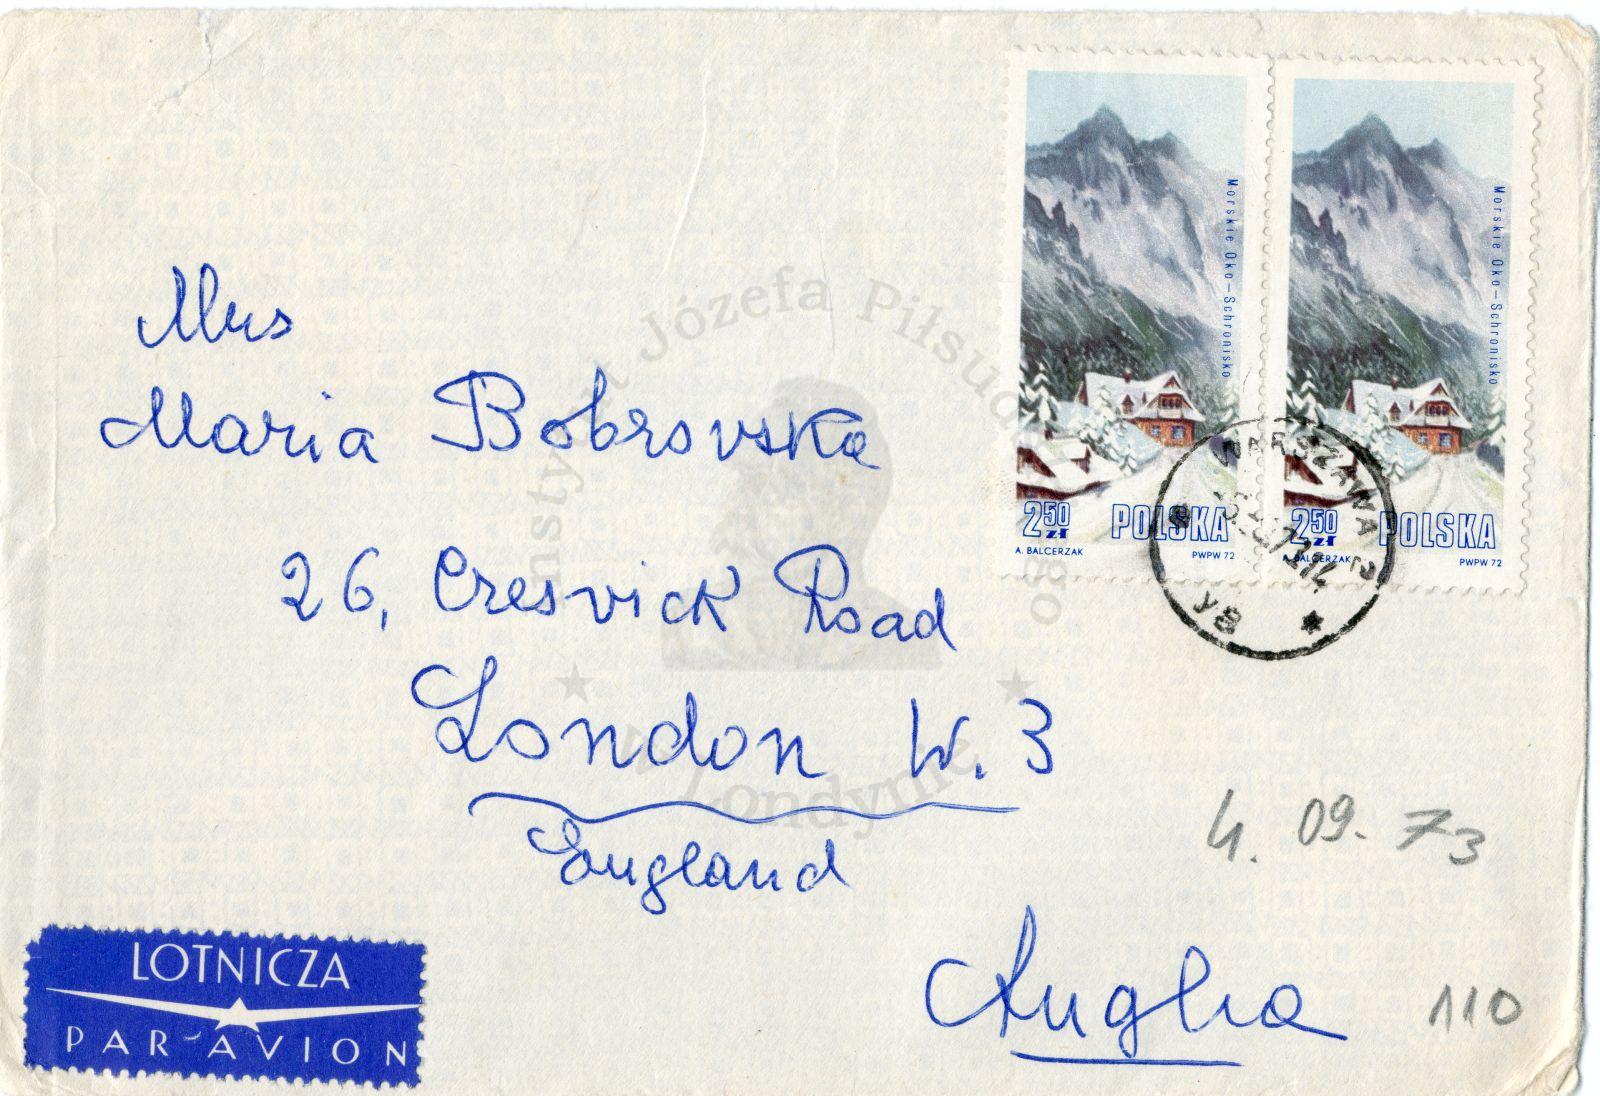 Morskie Oko – Schronisko
2 50 zł POLSKA
A. BALCERZAK PWPW 72
Morskie Oko – Schronisko
2 50 zł POLSKA
A. BALCERZAK PWPW 72
WARSZAWA
Mrs
Maria Bobrovska
26, Cresvick Road
London W. 3
England
Anglia
4. 09. 73
110
LOTNICZA
PAR AVION
Instytut Józefa Piłsudskiego
w Londynie